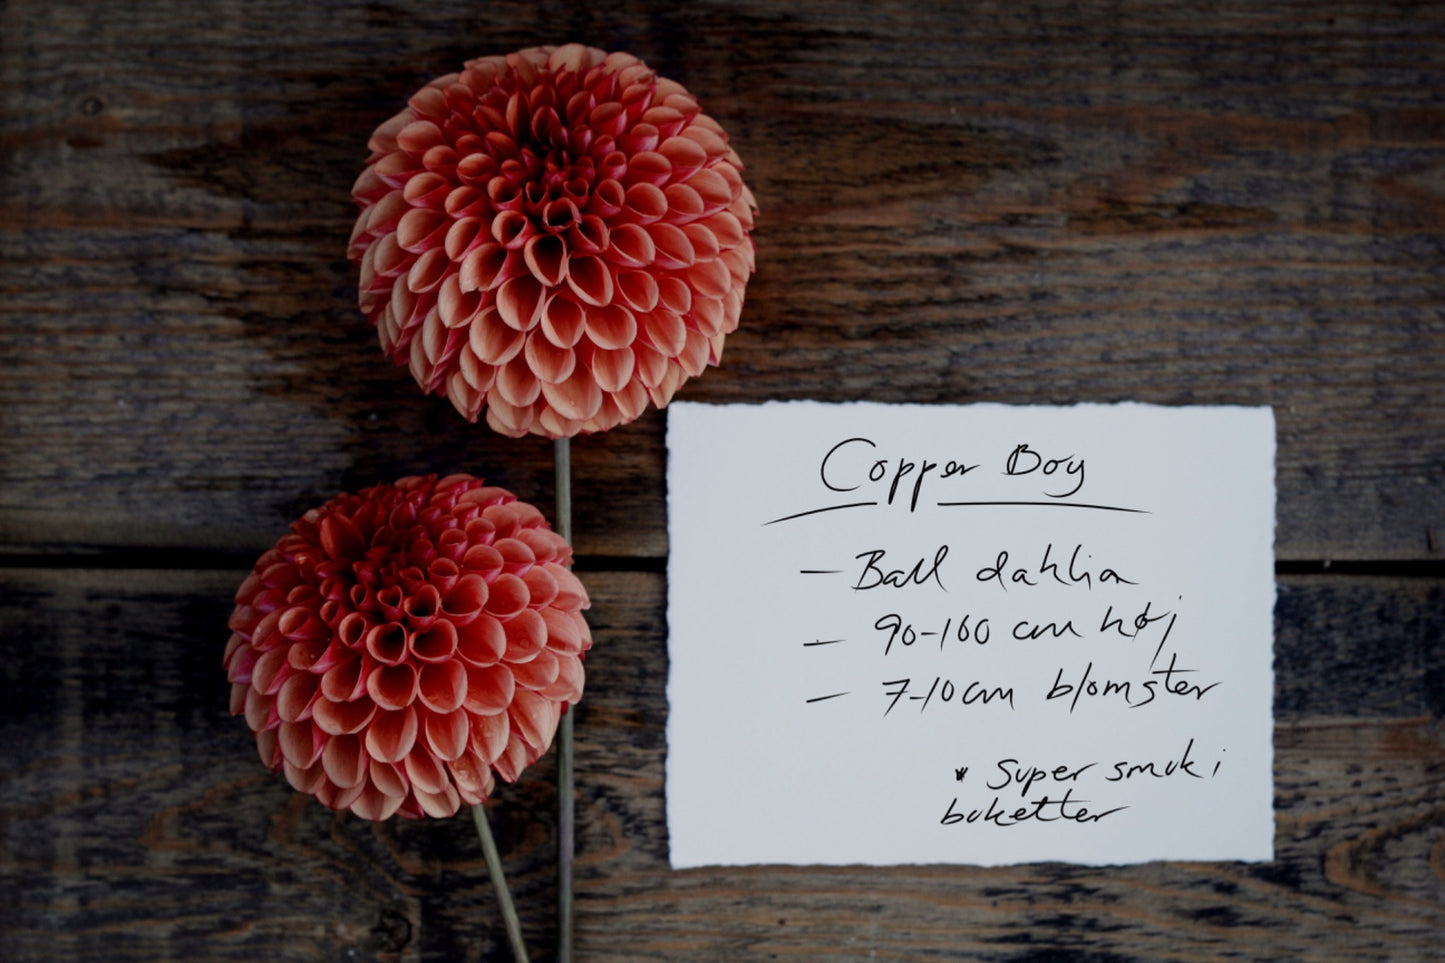 Copper Boy
- Ball dahlia
- 90-100 cm høj
- 7-10cm blomster
* Super smuk i
buketter